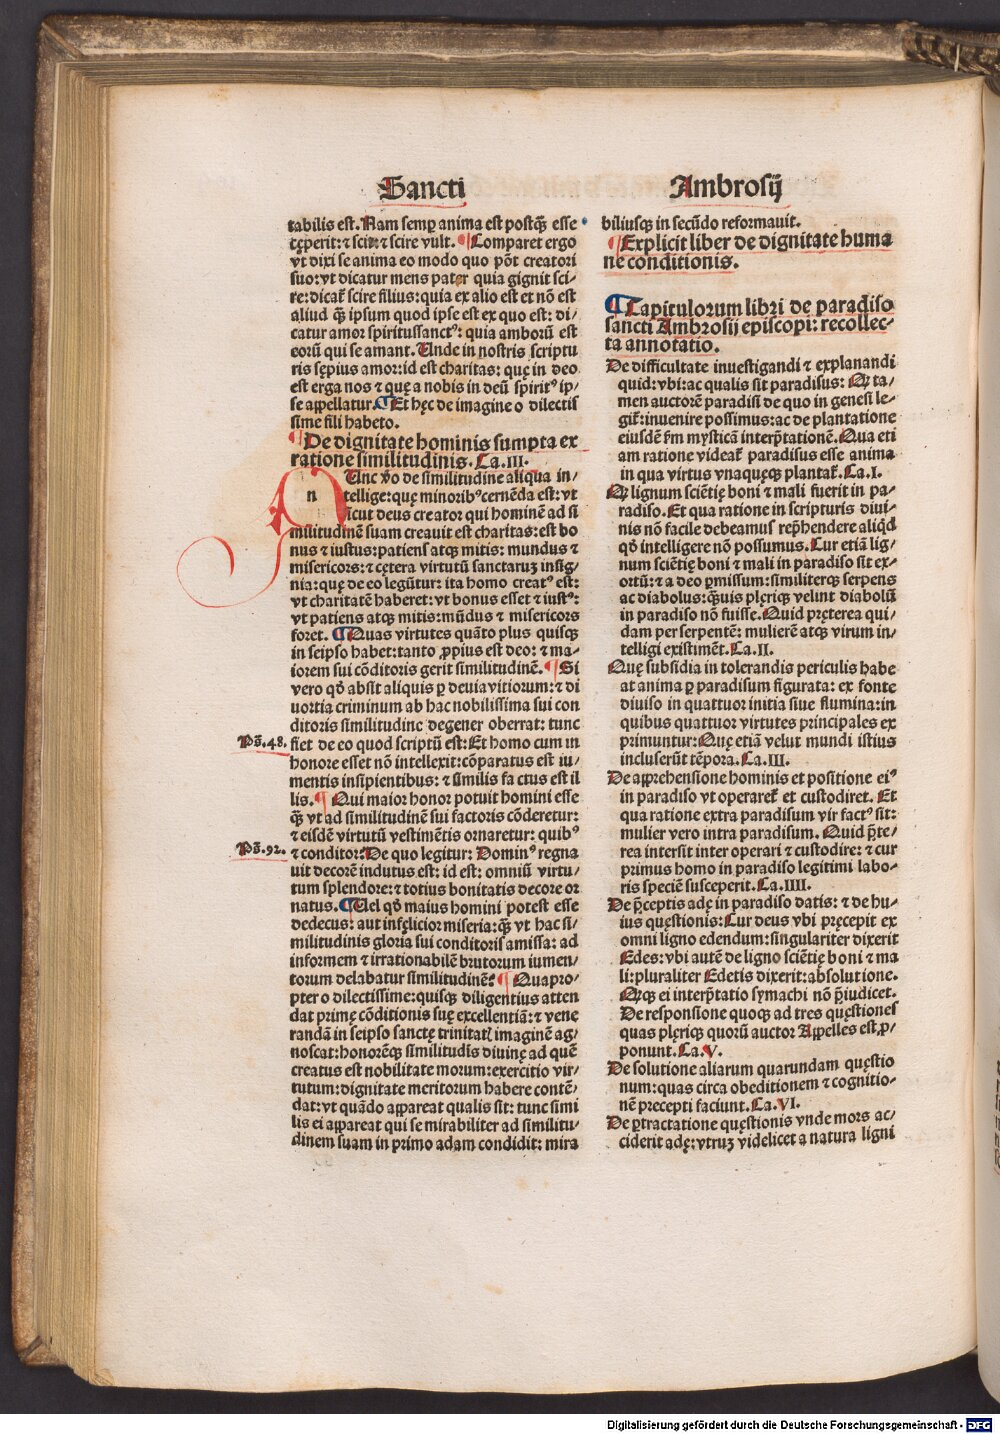 Sancti
Ambrosij
tabilis est. Nam semꝑ anima est postq̃ esse
cęperit: ⁊ scit: ⁊ scire vult. ¶ Comparet ergo
vt dixi se anima eo modo quo põt creatori
suo: vt dicatur mens pater quia gignit sci/
re: dicat̃ scire filius: quia ex alio est et nõ est
aliud q̃ ipsum quod ipse est ex quo est: di/
catur amor spiritussanctꝰ: quia amborũ est
eorũ qui se amant. Unde in nostris scriptu
ris sępius amor: id est charitas: quę in deo
est erga nos ⁊ quę a nobis in deũ spiritꝰ ip/
se appellatur. ¶ Et hęc de imagine o dilectis
sime fili habeto.
¶ De dignitate hominis sumpta ex
ratione similitudinis. Ca. III.
n Unc ṽo de similitudine aliqua in/
tellige: quę minoribꝰ cernẽda est: vt
sicut deus creator qui hominẽ ad si
militudinẽ suam creauit est charitas: est bo
nus ⁊ iustus: patiens atqꝫ mitis: mundus ⁊
misericors: ⁊ cętera virtutũ sanctaruꝫ insig/
nia: quę de eo legũtur: ita homo creatꝰ est:
vt charitatẽ haberet: vt bonus esset ⁊ iustꝰ:
vt patiens atqꝫ mitis: mũdus ⁊ misericors
foret. ¶ Quas virtutes quãto plus quisqꝫ
in seipso habet: tanto ꝓpius est deo: ⁊ ma/
iorem sui cõditoris gerit similitudinẽ. ¶ Si
vero qđ absit aliquis ꝑ deuia vitiorum: ⁊ di
uortia criminum ab hac nobilissima sui con
ditoris similitudine degener oberrat: tunc
Ps̃. 48. fiet de eo quod scriptũ est: Et homo cum in
honore esset nõ intellexit: cõparatus est iu/
mentis insipientibus: ⁊ similis fa ctus est il
lis. ¶ Qui maior honor potuit homini esse
q̃ vt ad similitudinẽ sui factoris cõderetur:
⁊ eisdẽ virtutũ vestimẽtis ornaretur: quibꝰ
Ps̃. 92. ⁊ conditor: De quo legitur: Dominꝰ regna
uit decorẽ indutus est: id est: omniũ virtu/
tum splendore: ⁊ totius bonitatis decore or
natus. ¶ Uel qđ maius homini potest esse
dedecus: aut infęlicior miseria: q̃ vt hac si/
militudinis gloria sui conditoris amissa: ad
informem ⁊ irrationabilẽ brutorum iumen/
torum delabatur similitudinẽ: ¶ Quapro/
pter o dilectissime: quisqꝫ diligentius atten
dat primę cõditionis suę excellentiã: ⁊ venę
randã in seipso sanctę trinitatꝭ imaginẽ ag/
noscat: honorẽqꝫ similitudis diuinę ad quẽ
creatus est nobilitate morum: exercitio vir/
tutum: dignitate meritorum habere contẽ/
dat: vt quãdo appareat qualis sit: tunc simi
lis ei appareat qui se mirabiliter ad similitu/
dinem suam in primo adam condidit: mira
biliusqꝫ in secũdo reformauit.
¶ Explicit liber de dignitate huma
ne conditionis.
¶ Capitulorum libri de paradiso
sancti Ambrosij episcopi: recollec/
ta annotatio.
De difficultate inuestigandi ⁊ explanandi
quid: vbi: ac qualis sit paradisus: Qꝫ ta/
men auctorẽ paradisi de quo in genesi le/
git̃: inuenire possimus: ac de plantatione
eiusdẽ ẽm mysticã interp̃tationẽ. Qua eti
am ratione videat̃ paradisus esse anima
in qua virtus vnaquęqꝫ plantat̃. Ca. I.
Qꝫ lignum sciẽtię boni ⁊ mali fuerit in pa/
radiso. Et qua ratione in scripturis diui/
nis nõ facile debeamus rep̃hendere aliqđ
qđ intelligere nõ possumus. Cur etiã lig/
num sciẽtię boni ⁊ mali in paradiso sit ex/
ortũ: ⁊ a deo ꝑmissum: similiterqꝫ serpens
ac diabolus: q̃uis plęriqꝫ velint diabolũ
in paradiso nõ fuisse. Quid pręterea qui/
dam per serpentẽ: mulierẽ atqꝫ virum in/
telligi existimẽt. Ca. II.
Quę subsidia in tolerandis periculis habe
at anima ꝑ paradisum figurata: ex fonte
diuiso in quattuor initia siue flumina: in
quibus quattuor virtutes principales ex
primuntur: Quę etiã velut mundi istius
incluserũt tẽpora. Ca. III.
De apprehensione hominis et positione eiꝰ
in paradiso vt operaret̃ et custodiret. Et
qua ratione extra paradisum vir factꝰ sit:
mulier vero intra paradisum. Quid p̃te/
rea intersit inter operari ⁊ custodire: ⁊ cur
primus homo in paradiso legitimi labo/
ris speciẽ susceperit. Ca. IIII.
De p̃ceptis adę in paradiso datis: ⁊ de hu/
ius quęstionis: Cur deus vbi pręcepit ex
omni ligno edendum: singulariter dixerit
Edes: vbi autẽ de ligno sciẽtię boni ⁊ ma
li: pluraliter Edetis dixerit: absolutione.
Qꝫqꝫ ei interp̃tatio symachi nõ p̃iudicet.
De responsione quoqꝫ ad tres quęstiones
quas plęriqꝫ quorũ auctor Appelles est ꝓ/
ponunt. Ca. V.
De solutione aliarum quarundam quęstio
num: quas circa obeditionem ⁊ cognitio/
nẽ precepti faciunt. Ca. VI.
De ꝑtractatione quęstionis vnde mors ac/
ciderit adę: vtruꝫ videlicet a natura ligni
Digitalisierung gefördert durch die Deutsche Forschungsgemeinschaft - DFG